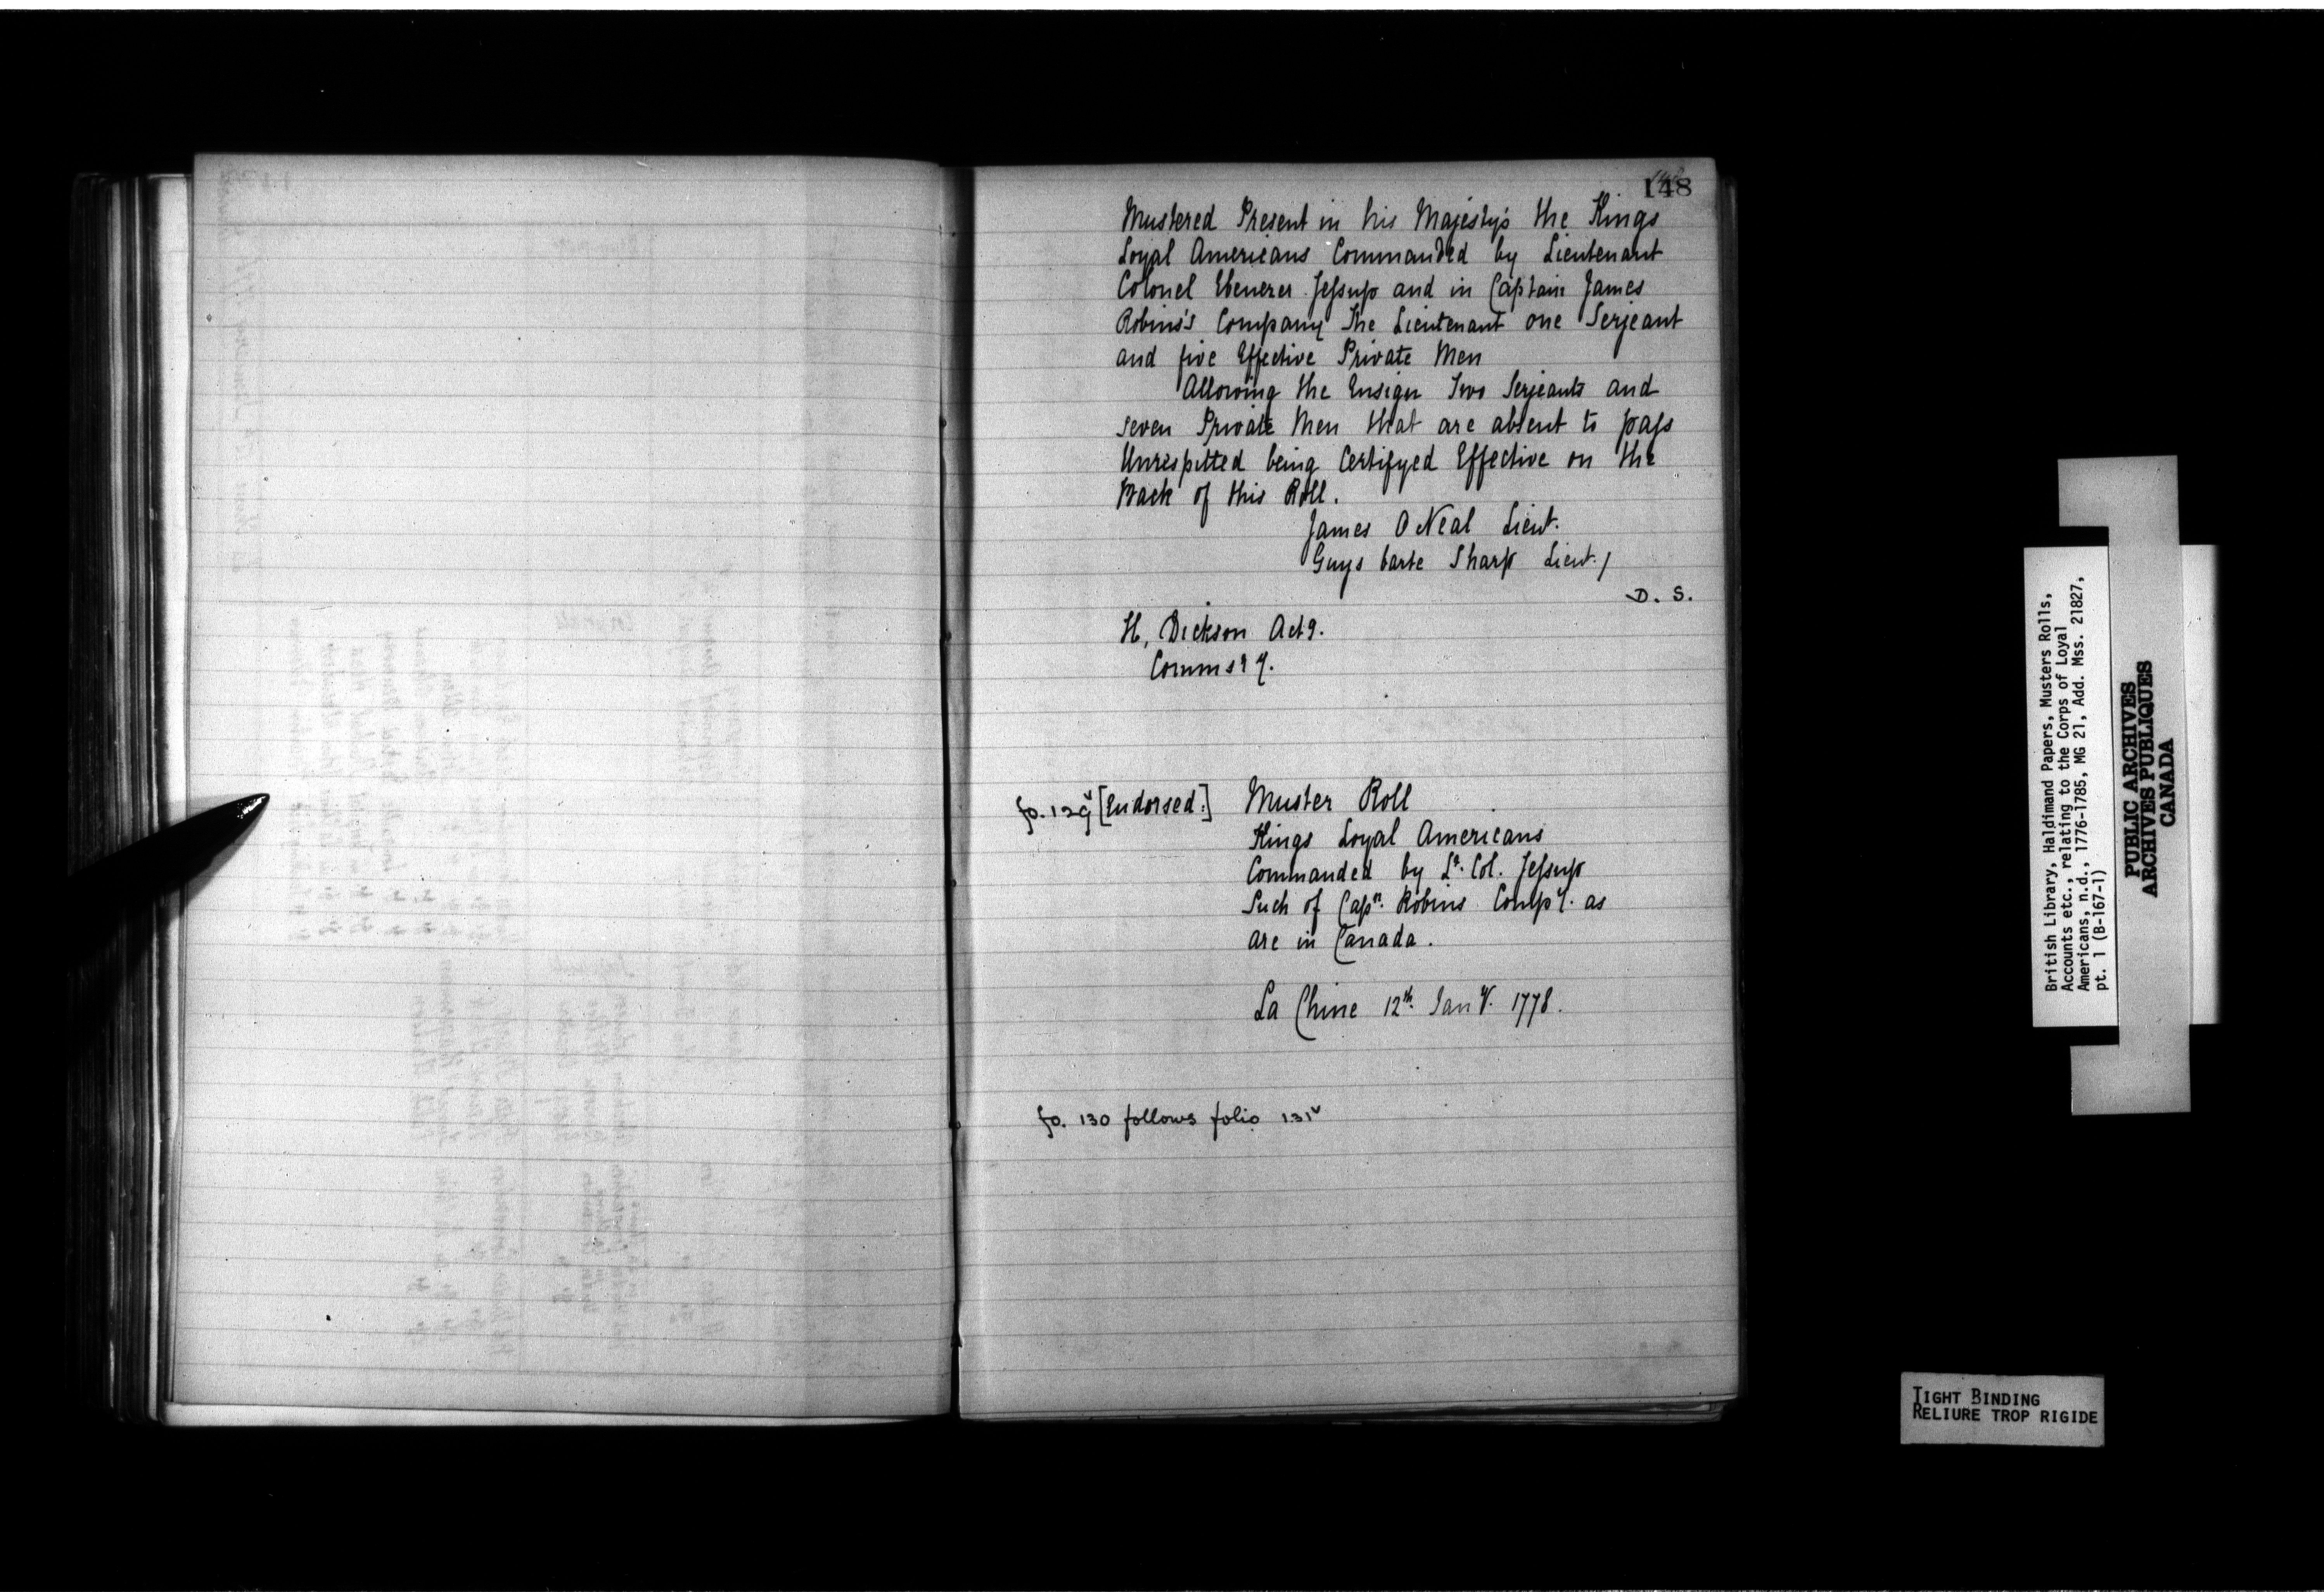 148
Mustered Present in his Majesty's the Kings
Loyal Americans Commanded by Lieutenant
Colonel Ebenezer Jeſsup and in Captain James
Robins's Company The Lieutenant one Serjeant
and five Effective Private Men
Allowing the Ensign Two Serjeants and
seven Private Men that are absent to paſs
Unrespitted being Certifyed Effective on the
Back of this Roll.
James O Neal Lieut.
Guys barte Sharp Lieut./
D. S.
H, Dickson Actg.
Commsry.
fo. 129v [Endorsed:] Muster Roll
Kings Loyal Americans
Commanded by Lt. Col. Jeſsup
Such of Capn. Robins Compy. as
are in Canada.
La Chine 12th. Jany. 1778.
fo. 130 follows folio 131v
British Library, Haldimand Papers, Musters Rolls,
Accounts etc., relating to the Corps of Loyal
Americans, n.d., 1776-1785, MG 21, Add. Mss. 21827,
pt. 1 (B-167-1)
PUBLIC ARCHIVES
ARCHIVES PUBLIQUES
CANADA
TIGHT BINDING
RELIURE TROP RIGIDE